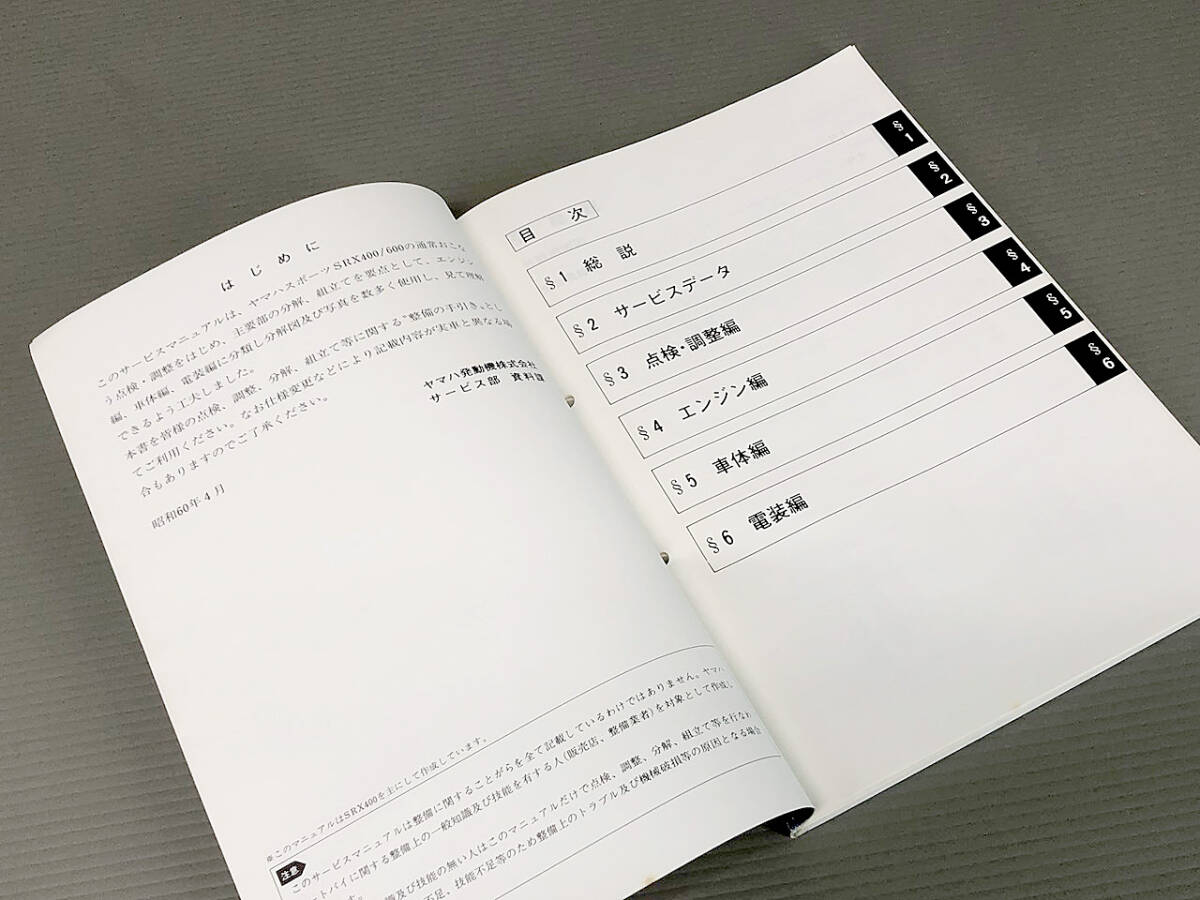 はじめに
このサービスマニュアルは、ヤマハスポーツSRX400/600の通常おこな
う点検・調整をはじめ、主要部の分解、組立てを要点として、エンジン
編、車体編、電装編に分類し分解図及び写真を数多く使用し、見て理解
できるよう工夫しました。
本書を皆様の点検、調整、分解、組立て等に関する“整備の手引き”とし
てご利用ください。なお仕様変更などにより記載内容が実車と異なる場
合もありますのでご了承ください。
ヤマハ発動機株式会社
サービス部 資料課
昭和60年4月
※このマニュアルはSRX400を主にして作成しています。
注意
このサービスマニュアルは整備に関することがらを全て記載しているわけではありません。ヤマハ
ートバイに関する整備上の一般知識及び技能を有する人(販売店、整備業者)を対象として作成し
す。
識及び技能の無い人はこのマニュアルだけで点検、調整、分解、組立て等を行なわ
不足、技能不足等のため整備上のトラブル及び機械破損等の原因となる場合
目 次
§1 総 説
§2 サービスデータ
§3 点検・調整編
§4 エンジン編
§5 車体編
§6 電装編
§1
§2
§3
§4
§5
§6